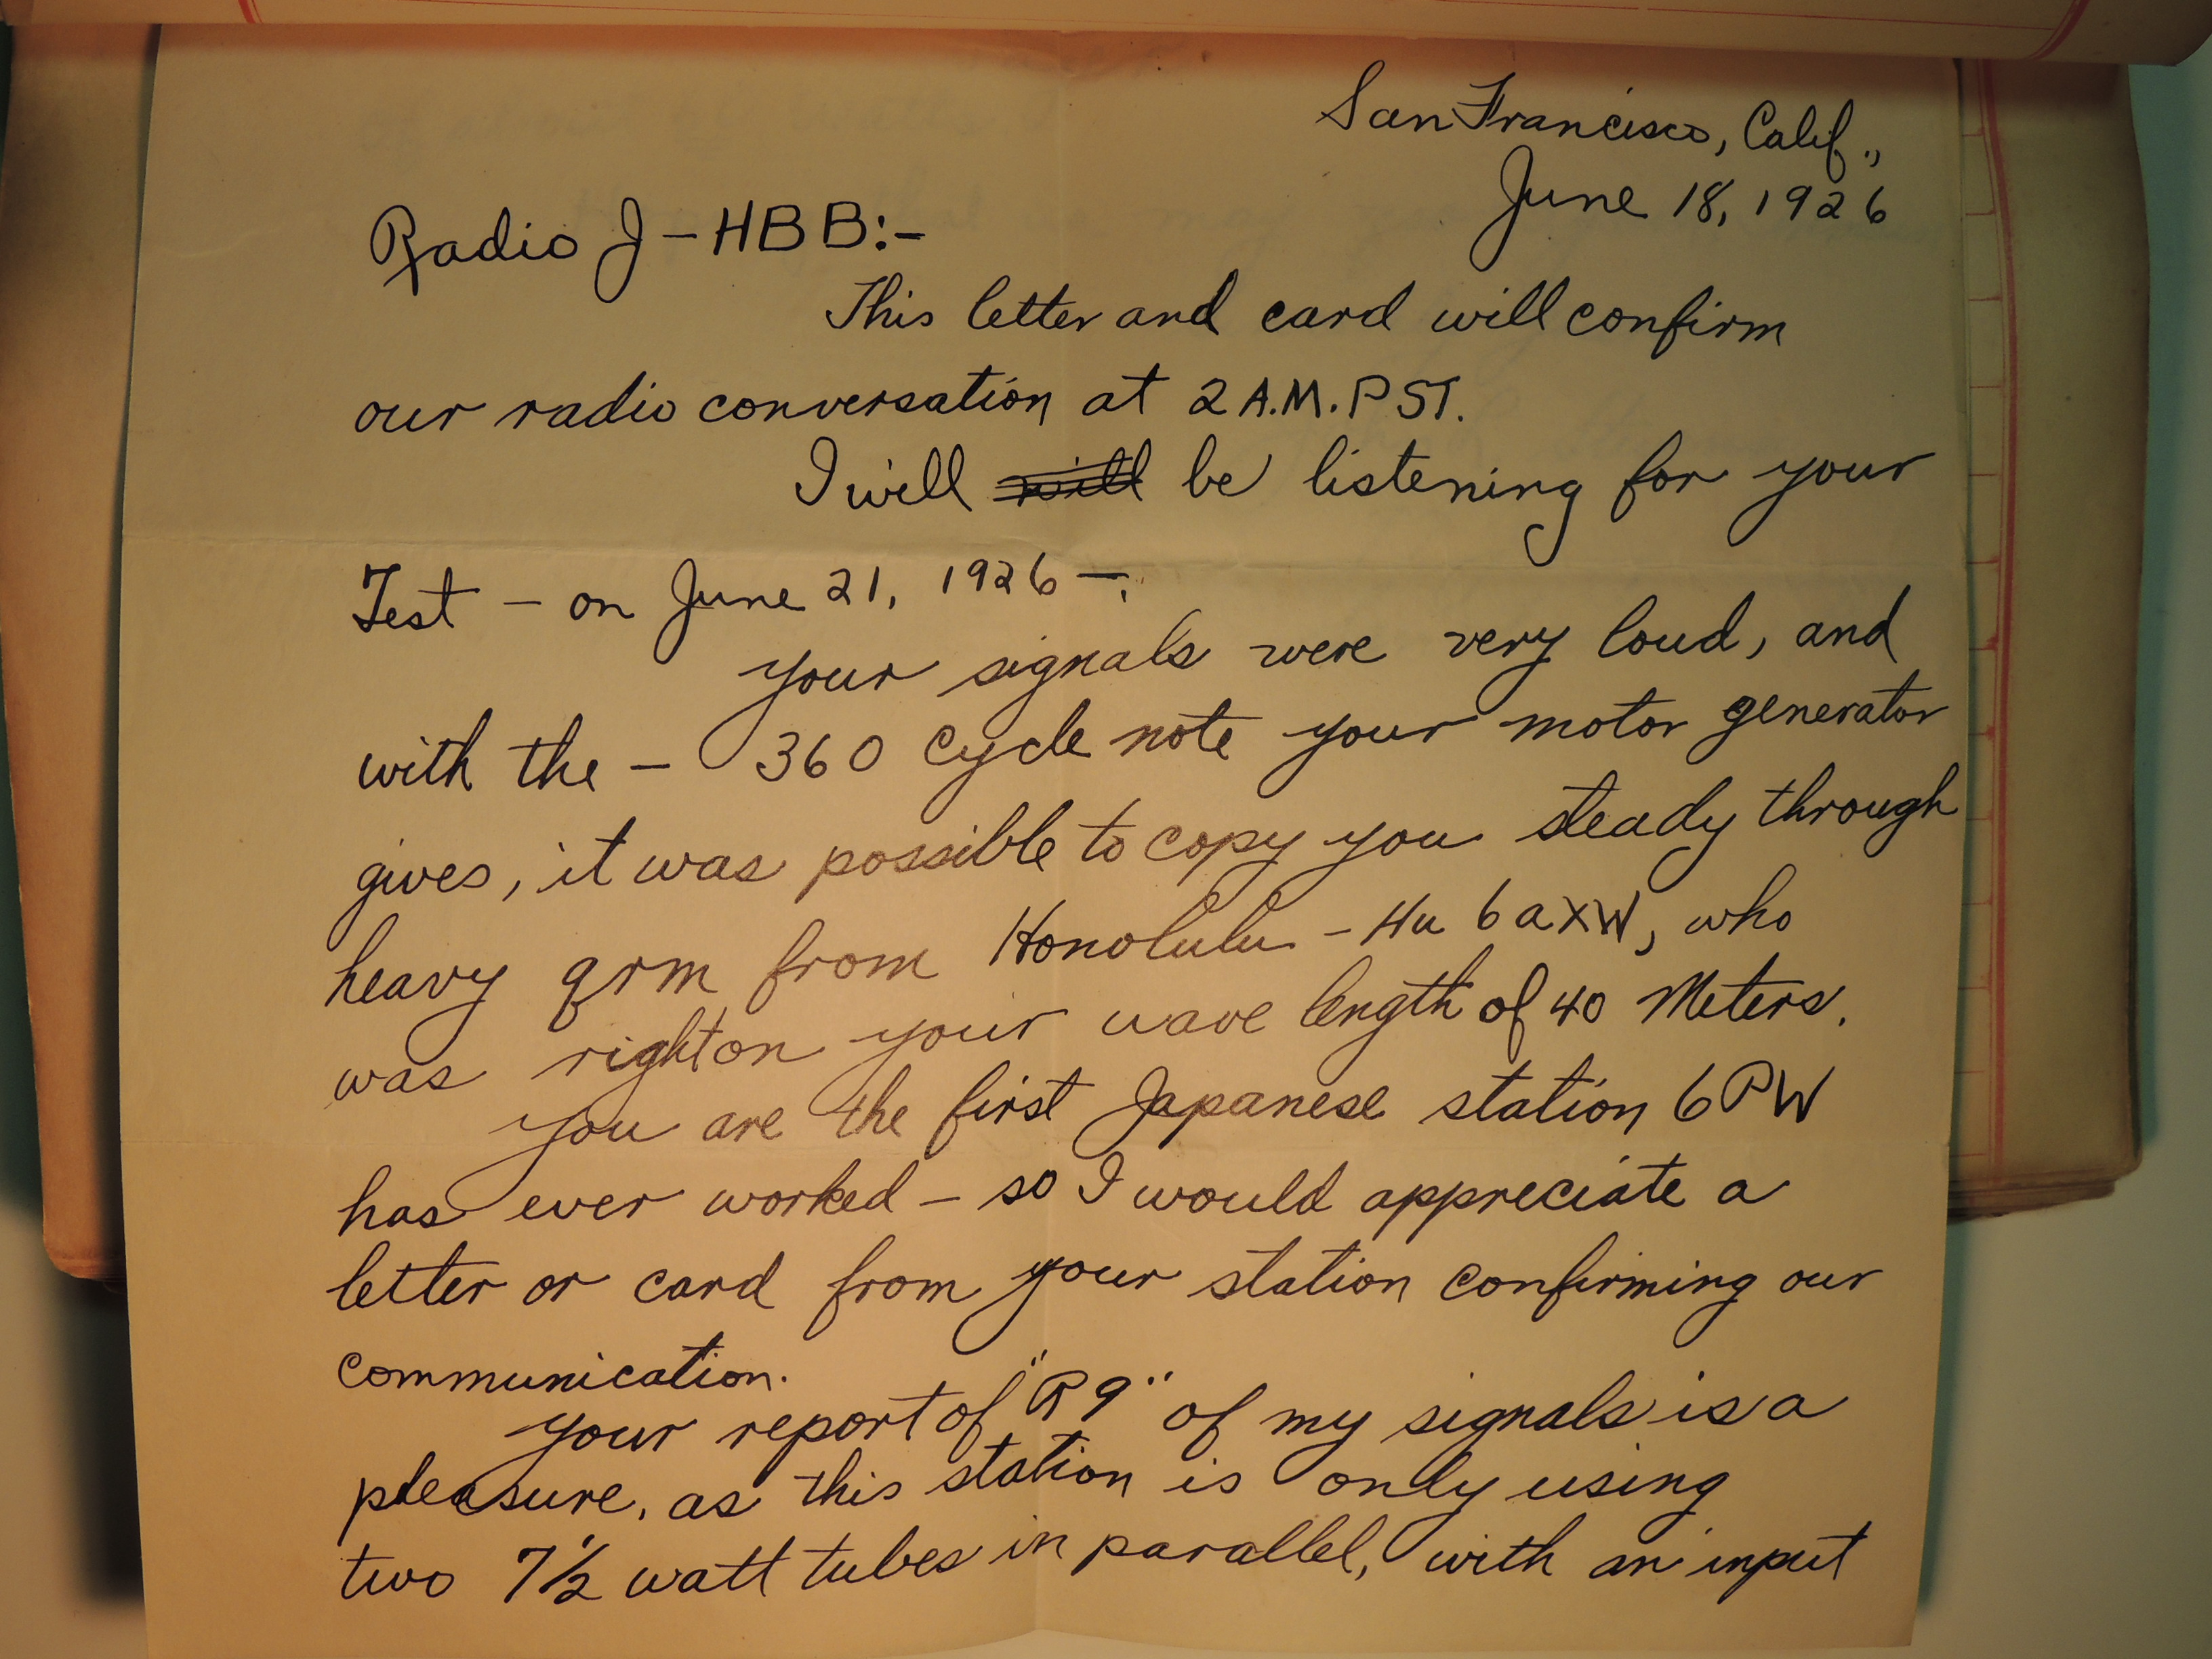 San Francisco, Calif.,
June 18, 1926
Radio J - HBB:-
This letter and card will confirm
our radio conversation at 2 A.M. PST.
I will will be listening for your
Test - on June 21, 1926 -.
Your signals were very loud, and
with the - 360 cycle note your motor generator
gives, it was possible to copy you steady through
heavy qrm from Honolulu - Hu 6aXW, who
was right on your wave length of 40 Meters.
You are the first Japanese station 6PW
has ever worked - so I would appreciate a
letter or card from your station confirming our
communication.
Your report of "R9" of my signals is a
pleasure, as this station is only using
two 7½ watt tubes in parallel, with an input